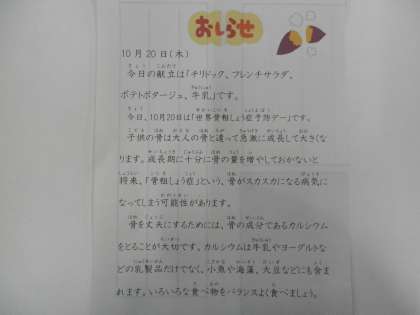 おしらせ
10月20日(木)
今日の献立は「チリドック、フレンチサラダ、
ポテトポタージュ、牛乳」です。
今日、10月20日は「世界骨粗しょう症予防デー」です。
子供の骨は大人の骨と違って急激に成長して大きくな
ります。成長期に十分に骨の量を増やしておかないと
将来、「骨粗しょう症」という、骨がスカスカになる病気に
なってしまう可能性があります。
骨を丈夫にするためには、骨の成分であるカルシウム
をとることが大切です。カルシウムは牛乳やヨーグルトな
どの乳製品だけでなく、小魚や海藻、大豆などにも含ま
れます。いろいろな食べ物をバランスよく食べましょう。